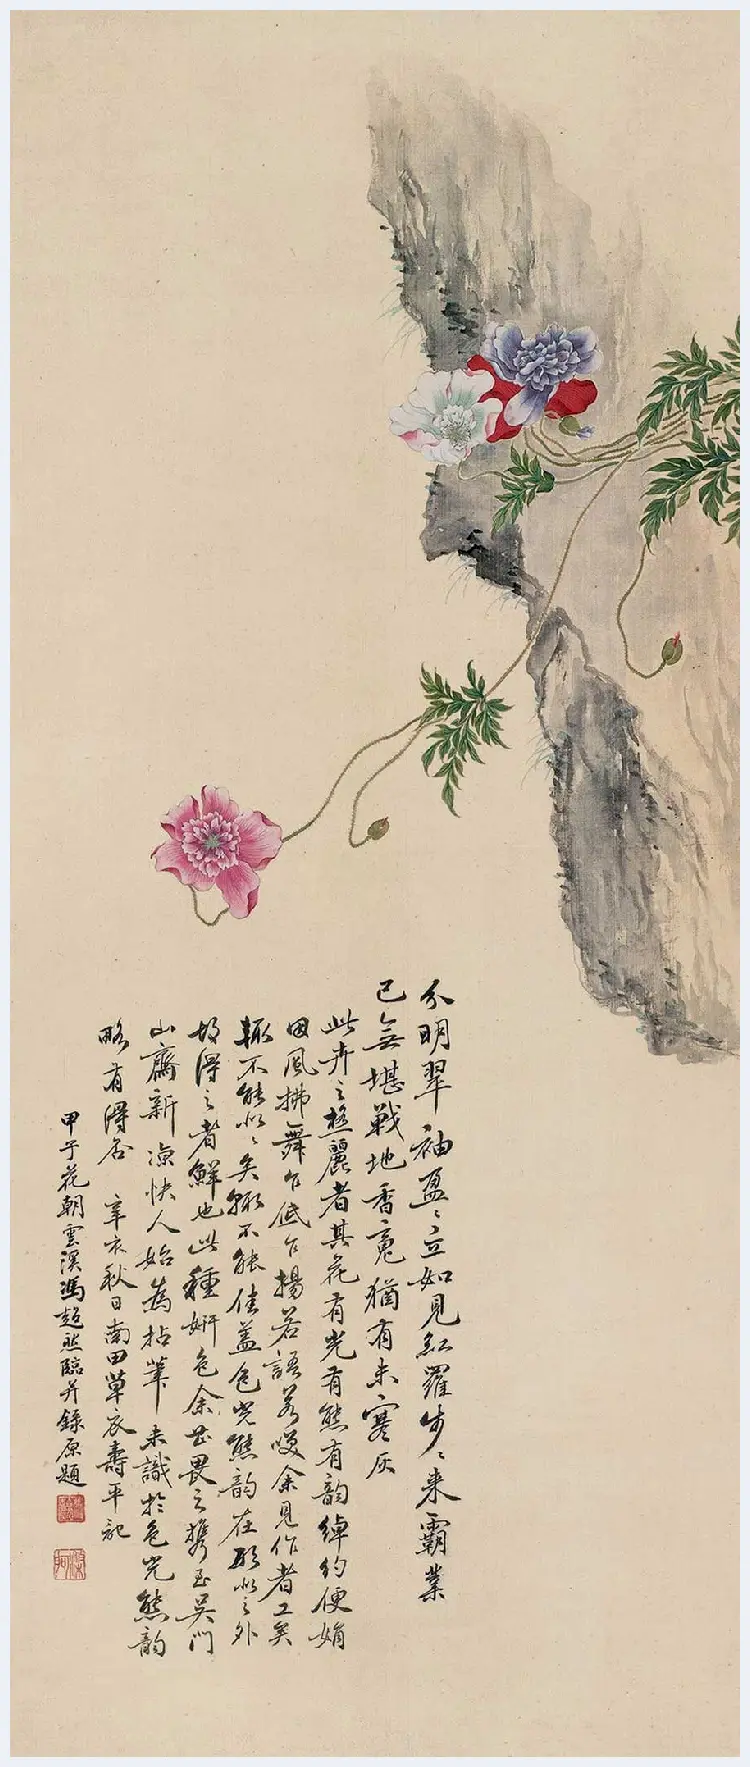 分明翠袖盈〻立如見紅羅步〻来霸業
已無堪戰地香魂猶有未寒灰
此卉之極麗者其花有光有態有韵綽約便娟
因風拂舞乍低乍揚若語若咲余見作者工矣
輒不能似〻矣輒不能佳蓋色光態韵在形似之外
故得之者鮮也此種妍色余甚畏之携至吳門
山齋新涼快人始為拈筆未識於色光態韵
略有得否 辛亥秋日南田草衣壽平記
甲子花朝雲溪馮超然臨并錄原題